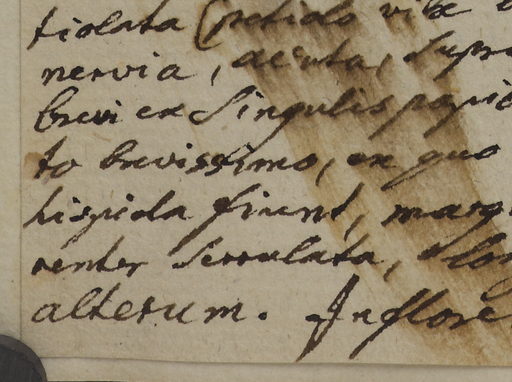 tiolata (petiolo vix
nervia, acuta, supra
brevi ex singulis papi
to brevissimo, ex quo
hispida fiunt, marg
renter serrulata, lon
alterum. Inflore